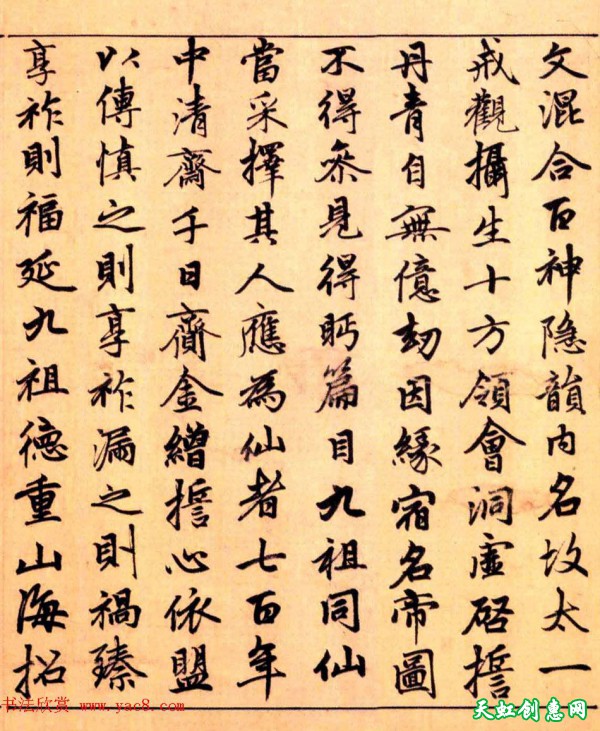 文混合百神隐韻内名故太一
戒觀攝生十方領會洞虛啓誓
丹青自無億劫因緣宿名帝圖
不得叅見得眄篇目九祖同仙
當采擇其人應為仙者七百年
中清齋千日齎金繒誓心依盟
以傳慎之則享祚漏之則禍臻
享祚則福延九祖德重山海招
书法欣赏 www.yac8.com
天虹创惠网